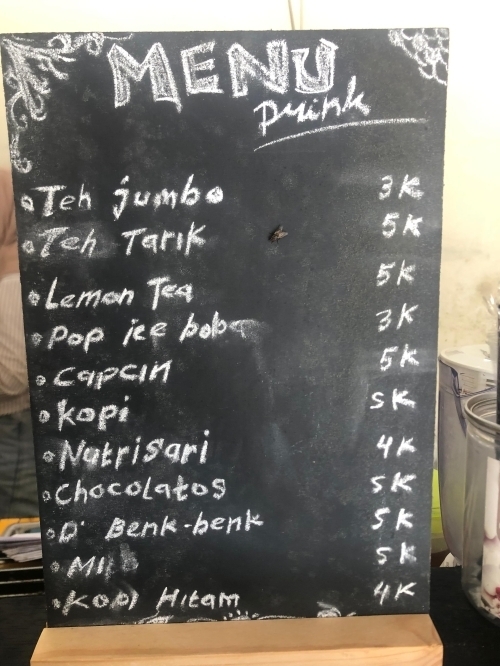 MENU
Drink
Teh jumbo 3K
Teh Tarik 5K
Lemon Tea 5K
Pop ice boba 3K
capcin 5K
kopi 5K
Nutrisari 4K
Chocolatos 5K
D' Benk-benk 5K
5K
Kopi Hitam 4K